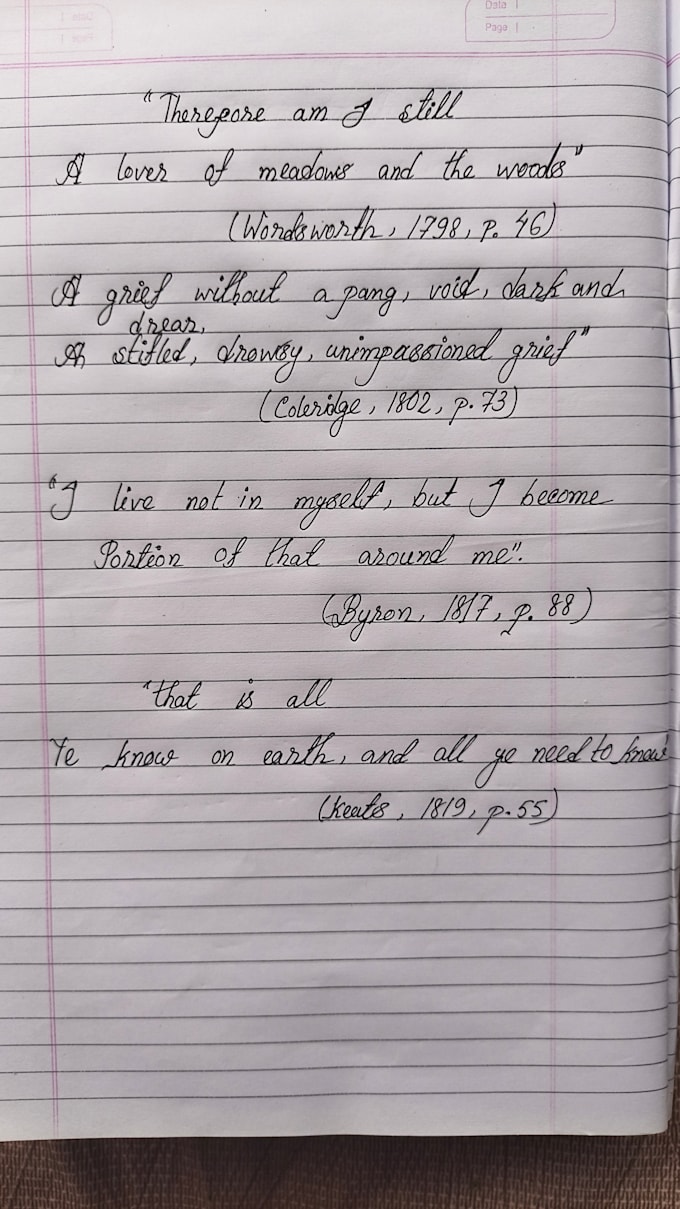 Data
Page
"Therefore am I still
A lover of meadows and the woods"
(Wordsworth, 1798, p. 46)
A grief without a pang, void, dark and
drear,
A stifled, drowsy, unimpassioned grief"
(Coleridge, 1802, p. 73)
"I live not in myself, but I become
Portion of that around me".
(Byron, 1817, p. 88)
"that is all
Ye know on earth, and all ye need to know"
(Keats, 1819, p. 55)